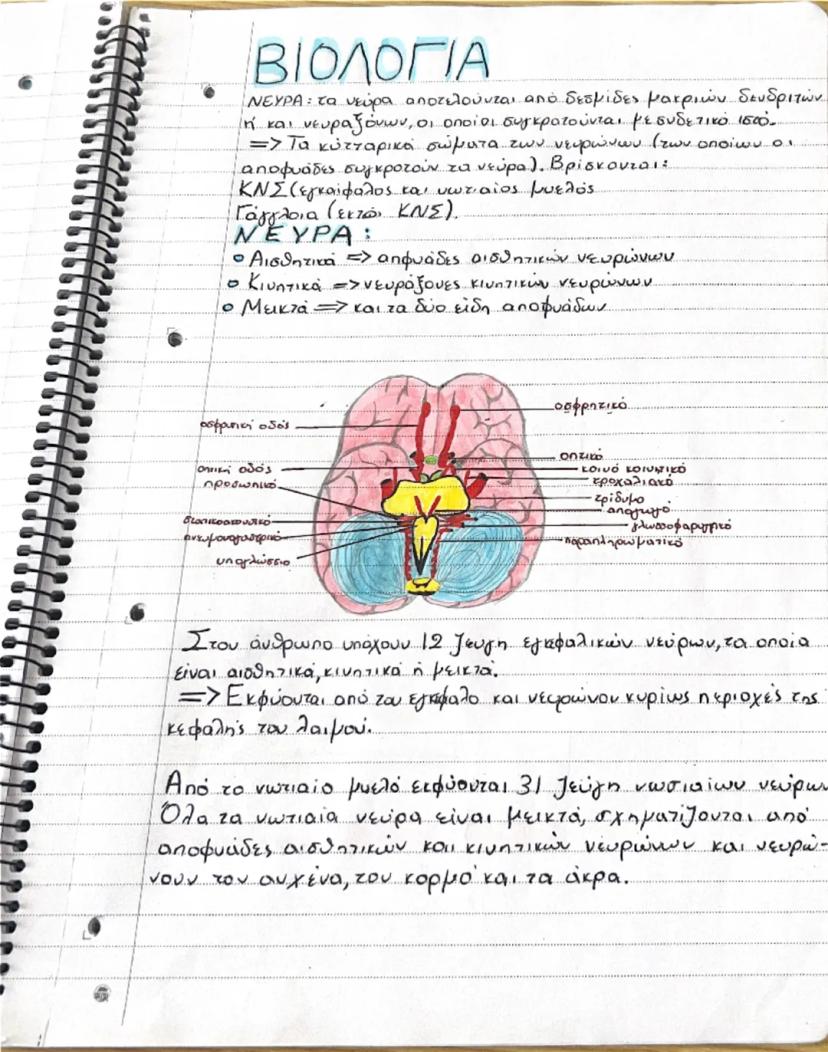 ΒΙΟΛΟΓΙΑ
ΝΕΥΡΑ: τα νεύρα αποτελούνται από δεσμίδες μακριών δενδριτών
ή και νευραξόνων, οι οποίοι συγκρατούνται με συδετικό ιστό.
=> Τα κύτταρικά σώματα των νευρώνων (των οποίων οι
αποφυάδες συγκροτούν τα νεύρα). Βρίσκονται:
ΚΝΣ (εγκαίφαλος και νωτιαίος μυελός
Γάγγλοια (εκτός ΚΝΣ).
ΝΕΥΡΑ:
Αισθητικά => απφυάδες αισθητικών νευρώνων
Κινητικά => νευράξονες κινητικών νευρώνων
Μεικτά => και τα δύο είδη αποφυάδων
οσφρητικό
οσφρτική οδός
οπτικό
οπτική οδός
κοινό κοινητικό
προσωπικό
τροχαλιακό
τρίδυμο
απαγωγό
στατικοακουστικό
γλωσσοφαρυγγικό
πνευμονογαστρικό
παραπληρωματικό
υπογλώσσιο
Στον άνθρωπο υπάχουν 12 ζευγη εγκεφαλικών νεύρων, τα οποία
είναι αισθητικά, κινητικά ή μεικτά.
=> Εκφύονται από τον εγκέφαλο και νευρώνουν κυρίως περιοχές της
κεφαλής του λαιμού.
Από το νωτιαίο μυελό εκφύονται 31 ζεύγη νωτιαίων νεύρων
Όλα τα νωτιαία νεύρα είναι μεικτά, σχηματίζονται από
αποφυάδες αισθητικών και κινητικών νευρώνων και νευρώ-
νουν τον αυχένα, τον κορμό και τα άκρα.